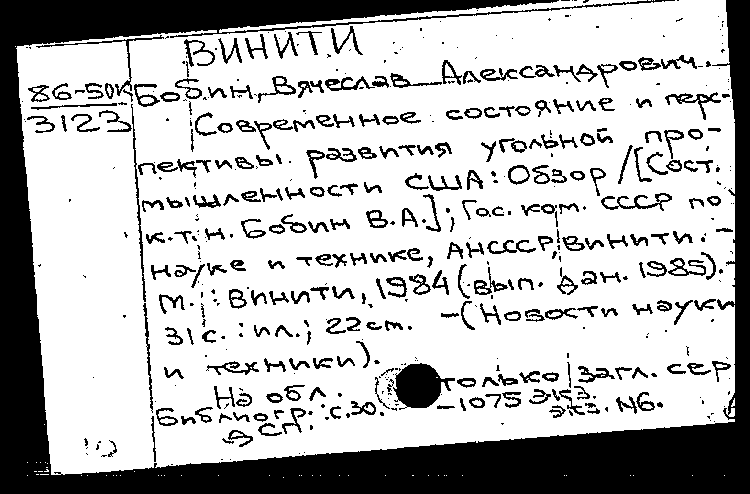 ВИНИТИ
86-50К
3123
Бобин, Вячеслав Александрович.
Современное состояние и перс-
пективы развития угольной про-
мышленности США: Обзор / [Сост.
к.т.н. Бобин В.А.]; Гос. ком. СССР по
науке и технике, АНСССР, ВИНИТИ. -
М.: ВИНИТИ, 1984 (вып. дан. 1985). -
31с.: ил.; 22см. - (Новости науки
и техники).
На обл. только загл. сер
Библиогр.: с.30. - 1075 экз.
экз. N6.